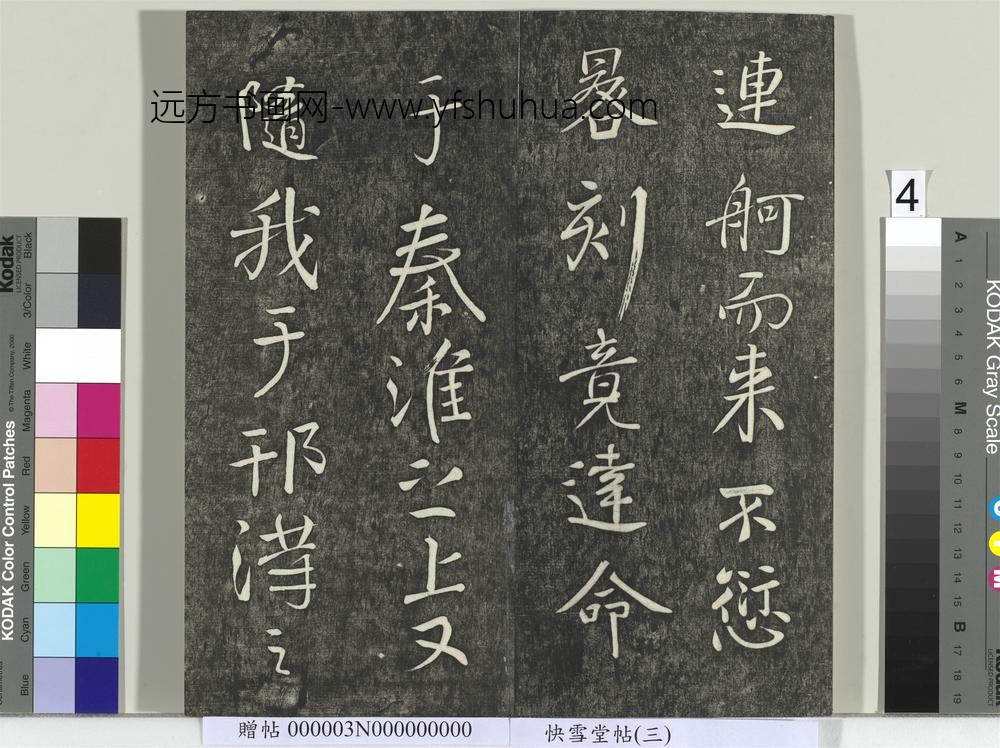 連舸而来不愆
晷刻竟達命
于秦淮之上又
隨我于邗溝之
远方书画网-www.yfshuhua.com
4
贈帖 000003N000000000
快雪堂帖(三)
Kodak
LICENSED PRODUCT
KODAK Color Control Patches
© The Tiffen Company, 2000
Black
3/Color
White
Magenta
Red
Yellow
Green
Cyan
Blue
KODAK Gray Scale
A
1
2
3
4
5
6
M
8
9
10
11
12
13
14
15
B
17
18
19